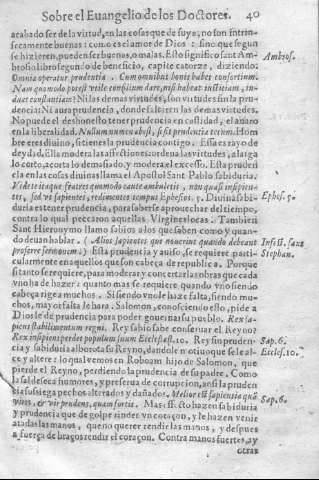 Sobre el Euangelio de los Doctores. 40
acabado ser de la virtud, en las cosas que de suyo, no son intrin-
secamente buenas: como es el amor de Dios: sino que segun
se hizieren, pueden ser buenas, o malas. Esto significo sant Am-
brosio libro segundo de beneficio, capite catorze, diziendo: Ambros.
Omnia operatur prudentia. Cum omnibus bonis habet consortium.
Nam quomodo potest vtile consilium dare, nisi habeat iustitiam, in-
duat constantiam? Ni las demas virtudes, son virtudes sin la pru-
dencia: Ni aura prudencia, donde faltaren las demas virtudes.
No puede el deshonesto tener prudencia en castidad, el auaro
en la liberalidad. Nullum numen abest, si sit prudentia tecum. Hom
bre eres diuino, si tienes la prudencia contigo. Essa es rayo de
deydad, Ella modera las affectiones: ordena las virtudes, alarga
lo corto, acorta lo demasiado, y modera el excesso. Esta pruden
cia en las cosas diuinas llama el Apostol Sant Pablo sabiduria.
Videte itaque fratres quomodo caute ambuletis, non quasi insipien-
tes, sed vt sapientes, redimentes tempus Ephesios. 5. Diuina sabi- Ephes. 5.
duria es tener prudencia, para saberse aprouechar del tiempo,
contra lo qual peccaron aquellas Virgines locas. Tambien
Sant Hieronymo llamo sabios a los que saben como y quan-
do deuan hablar. (Alios sapientes qui nouerint quando debeant In fest. sant
proferre sermonem.) Esta prudencia y auiso, se requiere parti- Stephan.
cularmente en aquellos que son cabeça de republica. Porque
si tanto se requiere, para moderar y concertar las obras que cada
vno ha de hazer: quanto mas se requiere quando vno siendo
cabeça rige a muchos. Si siendo vno le haze falta, siendo mu-
chos, mayor falta le hara. Salomon, conosciendo esto, pide a
Dios le de prudencia para poder gouernar su pueblo. Rex sa-
piens stabilimentum regni. Rey sabio sabe conseruar el Reyno?
Rex insipiens perdet populum suum Ecclesiast. 10. Rey sin pruden- Sap. 6.
cia y sabiduria alborota su Reyno, dandole motiuo que se le al- Eccles. 10.
ce y altere: lo qual vemos en Roboam hijo de Salomon, que
pierde el Reyno, perdiendo la prudencia de su padre. Como
la sal desseca humores, y preserua de corrupcion, ansi la pruden
cia sossiega pechos alterados y dañados. Melior est sapientia quã
vires, & vir prudens, quam fortis. Mas effecto hazen sabiduria Sap. 6.
y prudencia que de golpe rinden vn coraçon, y le hazen venir
atadas las manos, que no querer rendir las manos, y despues
a fuerça de braços rendir el coraçon. Contra manos fuertes, ay
otras